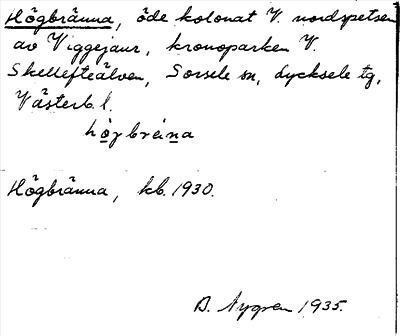 Högbränna, öde kolonat V. nordspetsen
av Viggejaur, kronoparken V.
Skellefteälven, Sorsele sn, Lycksele tg,
Västerb. l.
Högbränna, kb. 1930.
A. Nygren 1935.